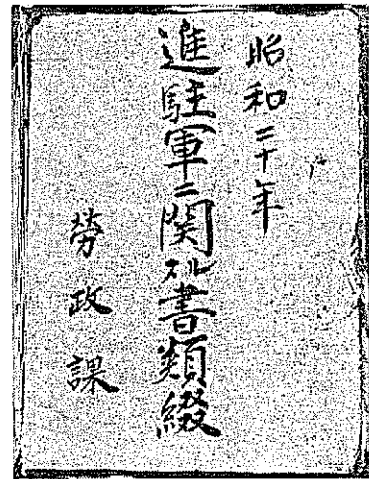 昭和二十年
進駐軍ニ関スル書類綴
勞政課